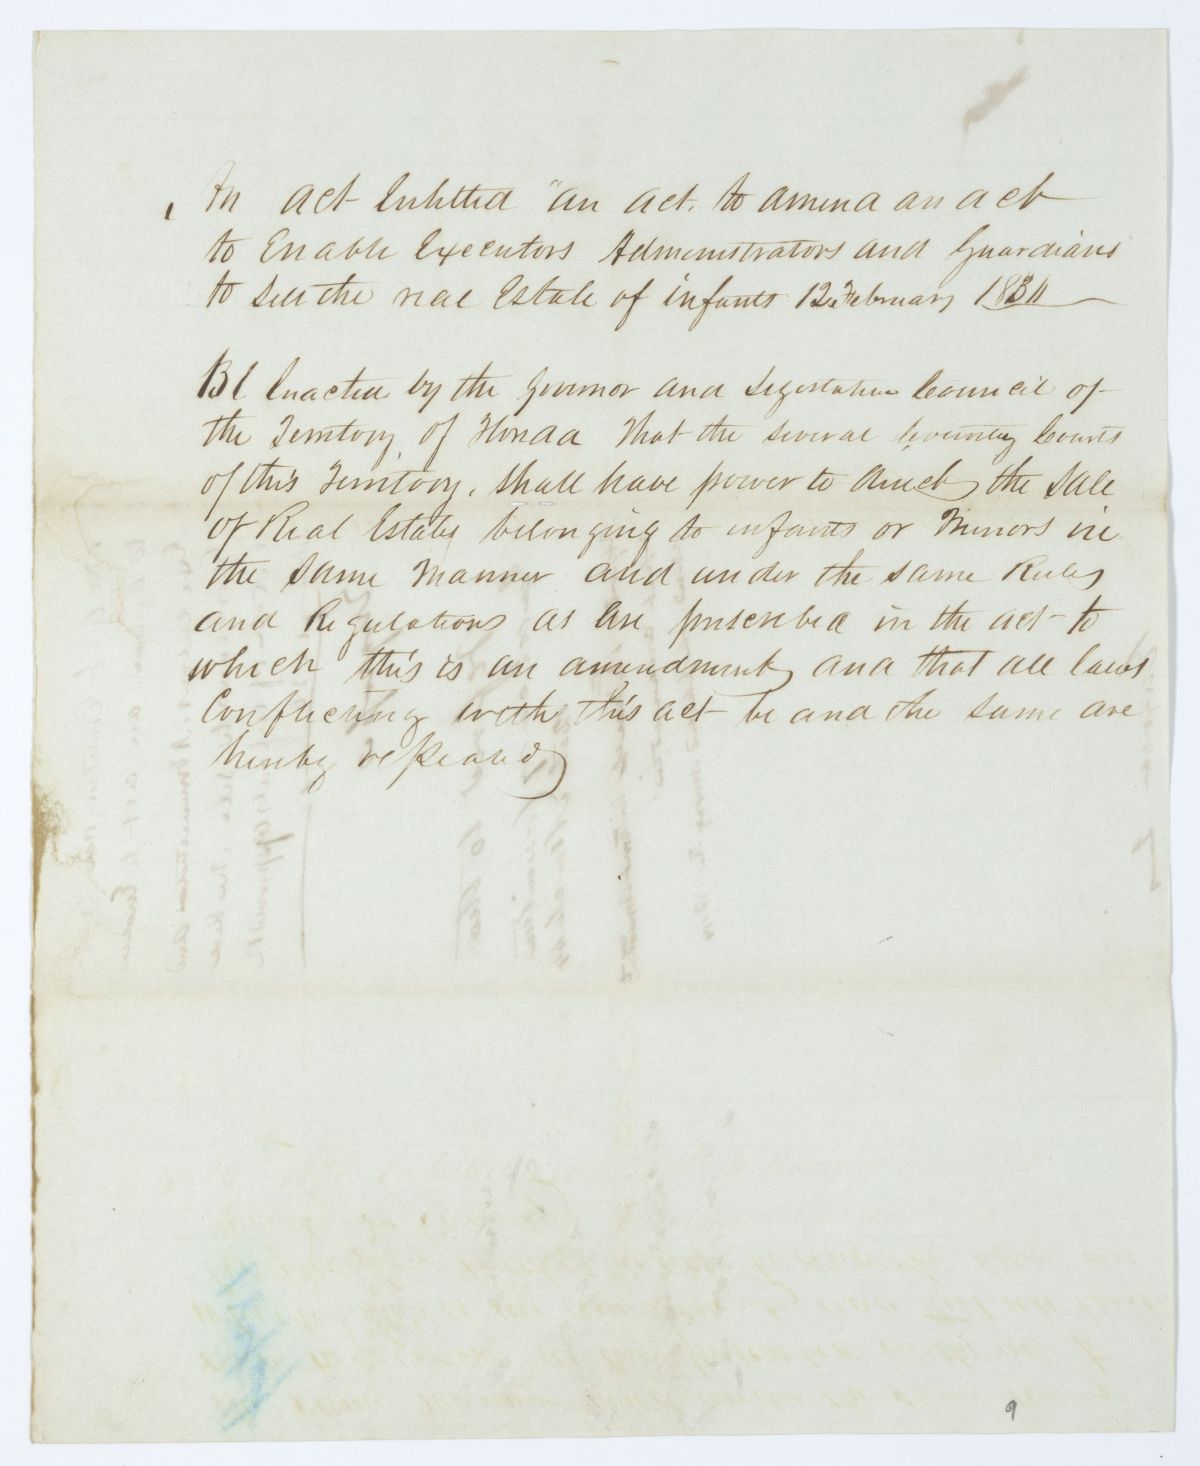 An act Entitled "an act. to amend an act
to Enable Executors Administrators and Guardians
to sell the real Estate of infants 12 February 1834
Be Enacted by the Governor and Legislative Council of
the Territory of Florida That the several County Courts
of this Territory, shall have power to direct the Sale
of Real Estate belonging to infants or Minors in
the same manner and under the same Rules
and Regulations as are prescribed in the act to
which this is an amendment, and that all laws
Conflicting with this act be and the same are
hereby repealed
9